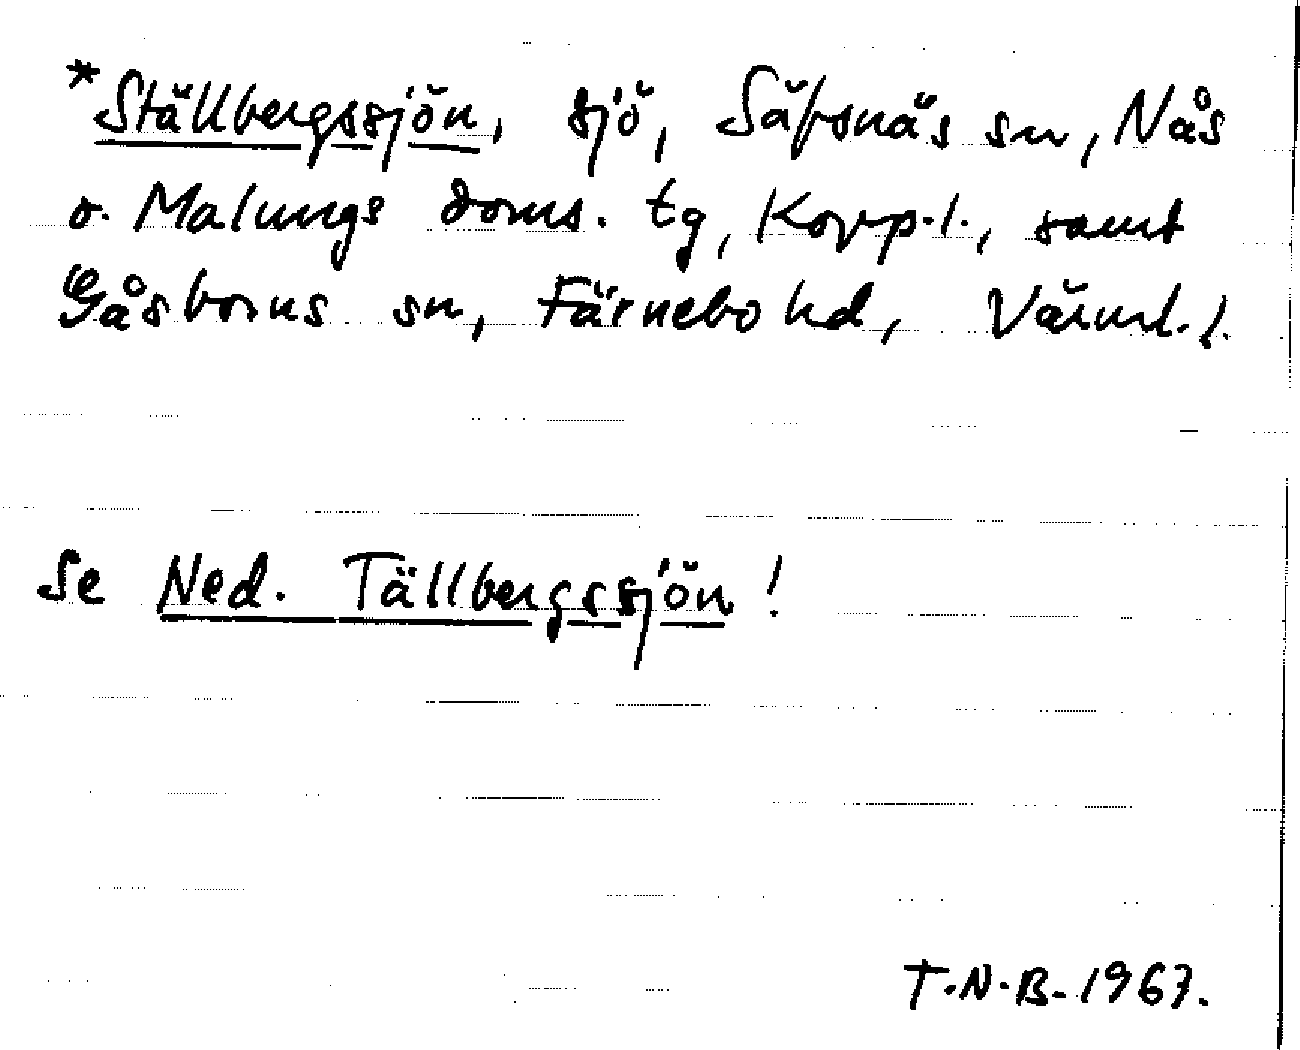 *Ställbergssjön, sjö, Säfsnäs sn, Nås
o. Malungs doms. tg, Kopp.l., samt
Gåsborns sn, Färnebo hd, Värml. l.
Se Ned. Tällbergssjön!
T.N.B. 1967.